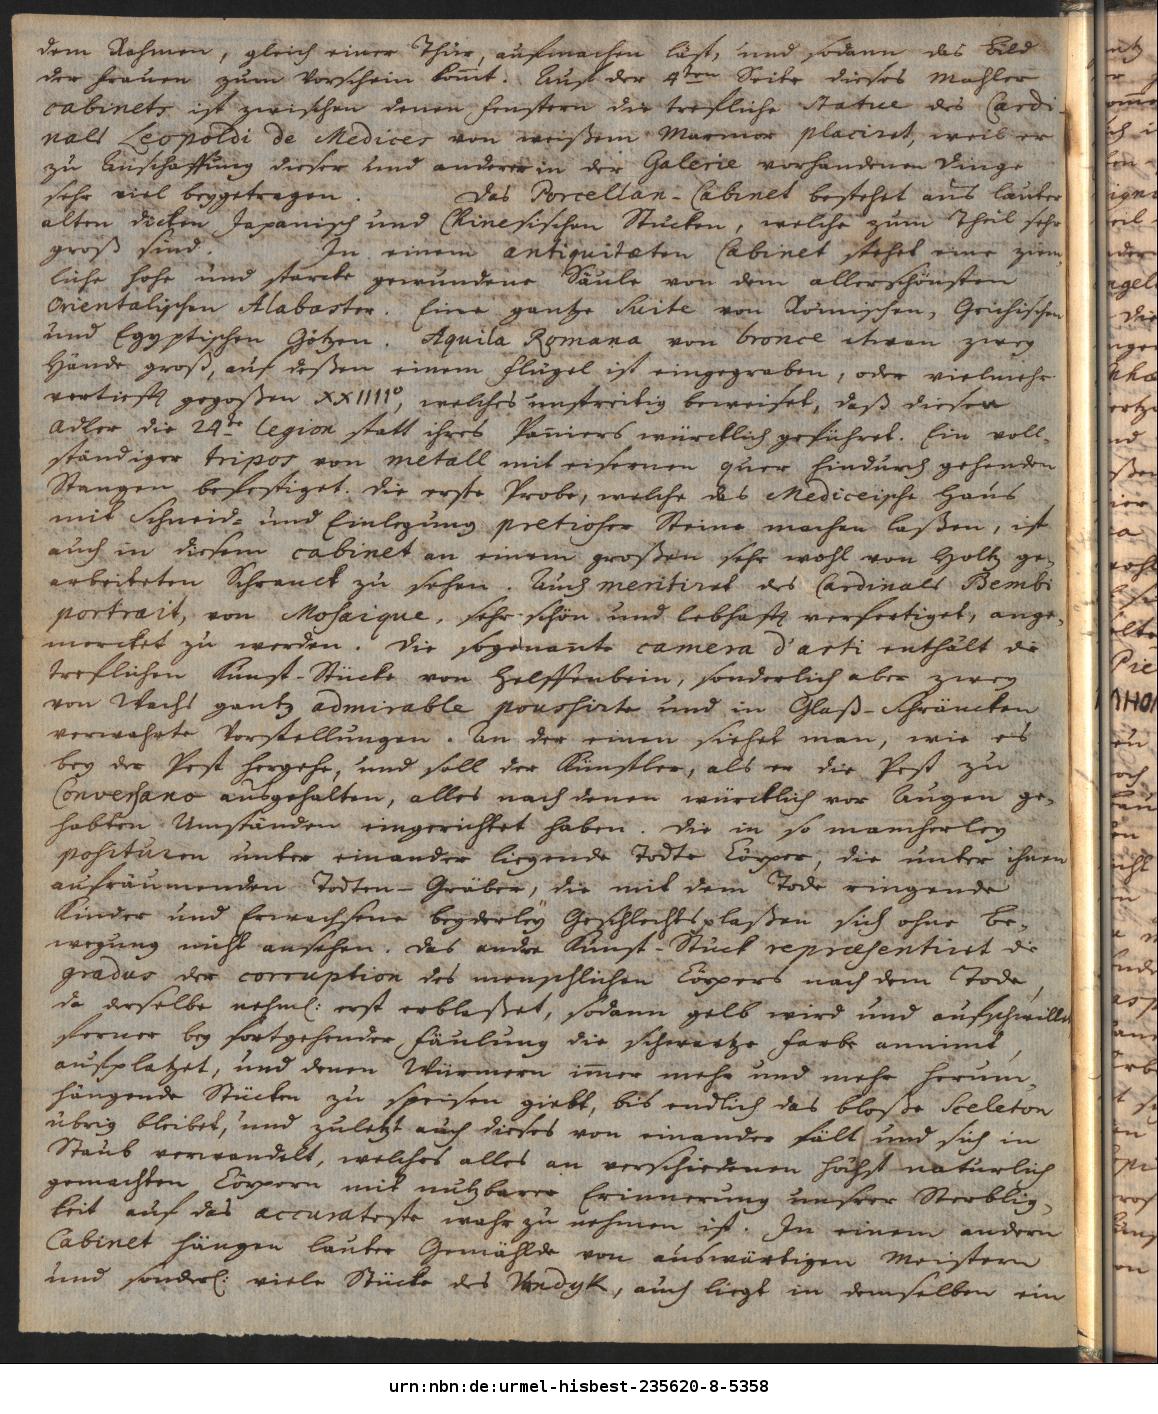 dem Rahmen, gleich einer Thür, aufmachen läst, und sodann das Bild
der Frauen zum Vorschein kom̄t. Auf der 4ten Seite dieses Mahler
cabinets ist zwischen denen Fenstern die trefliche Statue des Cardi-
nals Leopoldi de Medices von weißem Marmor placiret, weil er
zu Anschaffung dieser und anderer in der Galerie vorhandenen Dinge
sehr viel beygetragen. Das Porcellan-Cabinet bestehet aus lauter
alten dicken Japanisch und Chinesischen Stücken, welche zum Theil sehr
groß sind. In einem antiquitæten Cabinet stehet eine ziem-
liche hohe und starcke gewundene Säule von dem allerschönsten
Orientalischen Alabaster. Eine gantze Suite von Römischen, Grichischen
und Egyptischen Götzen. Aquila Romana von bronce etwan zwey
Hände groß, auf deßen einem Flügel ist eingegraben, oder vielmehr
vertieft gegoßen XXIIII°, welches unstreitig beweiset, daß dieser
Adler die 24te Legion statt ihres Paniers würcklich geführet. Ein voll-
ständiger tripos von metall mit eisernen quer hindurch gehenden
Stangen befestiget. Die erste Probe, welche das Mediceische Haus
mit Schneid- und Einlegung pretioser Steine machen laßen, ist
auch in diesem cabinet an einem großen sehr wohl von Holtz ge-
arbeiteten Schranck zu sehen. Auch meritiret des Cardinals Bembi
portrait, von Mosaique, sehr schön und lebhaft verfertiget, ange-
mercket zu werden. Die sogenannte camera d'arti enthält die
treflichen Kunst-Stücke von Helffenbein, sonderlich aber zwey
von Wachs gantz admirable poussirte und in Glaß-Schräncken
verwahrte Vorstellungen. An der einen siehet man, wie es
bey der Pest hergehe, und soll der Künstler, als er die Pest zu
Conversano ausgehalten, alles nach denen würcklich vor Augen ge-
habten Umständen eingerichtet haben. Die in so mancherley
posituren unter einander liegende Todte Cörper, die unter ihnen
aufräumenden Todten-Gräber, die mit dem Tode ringende
Kinder und Erwachsene beyderley Geschlechts laßen sich ohne Be-
wegung nicht ansehen. Das andre Kunst-Stück repræsentiret die
gradus der corruption des menschlichen Cörpers nach dem Tode,
da derselbe nehml: erst erblaßet, sodann gelb wird und aufschwillt,
ferner bey fortgehender Fäulung die schwartze Farbe annim̄t,
aufplatzet, und denen Würmern im̄er mehr und mehr herum-
hängende Stücken zu speisen giebt, bis endlich das bloße Sceleton
übrig bleibet, und zuletzt auch dieses von einander fält und sich in
Staub verwandelt, welches alles an verschiedenen höchst natürlich
gemachten Cörpern mit nutzbarer Erinnerung unserer Sterblig-
keit auf das accurateste wahr zu nehmen ist. In einem andern
Cabinet hängen lauter Gemählde von auswärtigen Meistern
und sonderl: viele Stücke des Vandyk, auch liegt in demselben ein
urn:nbn:de:urmel-hisbest-235620-8-5358